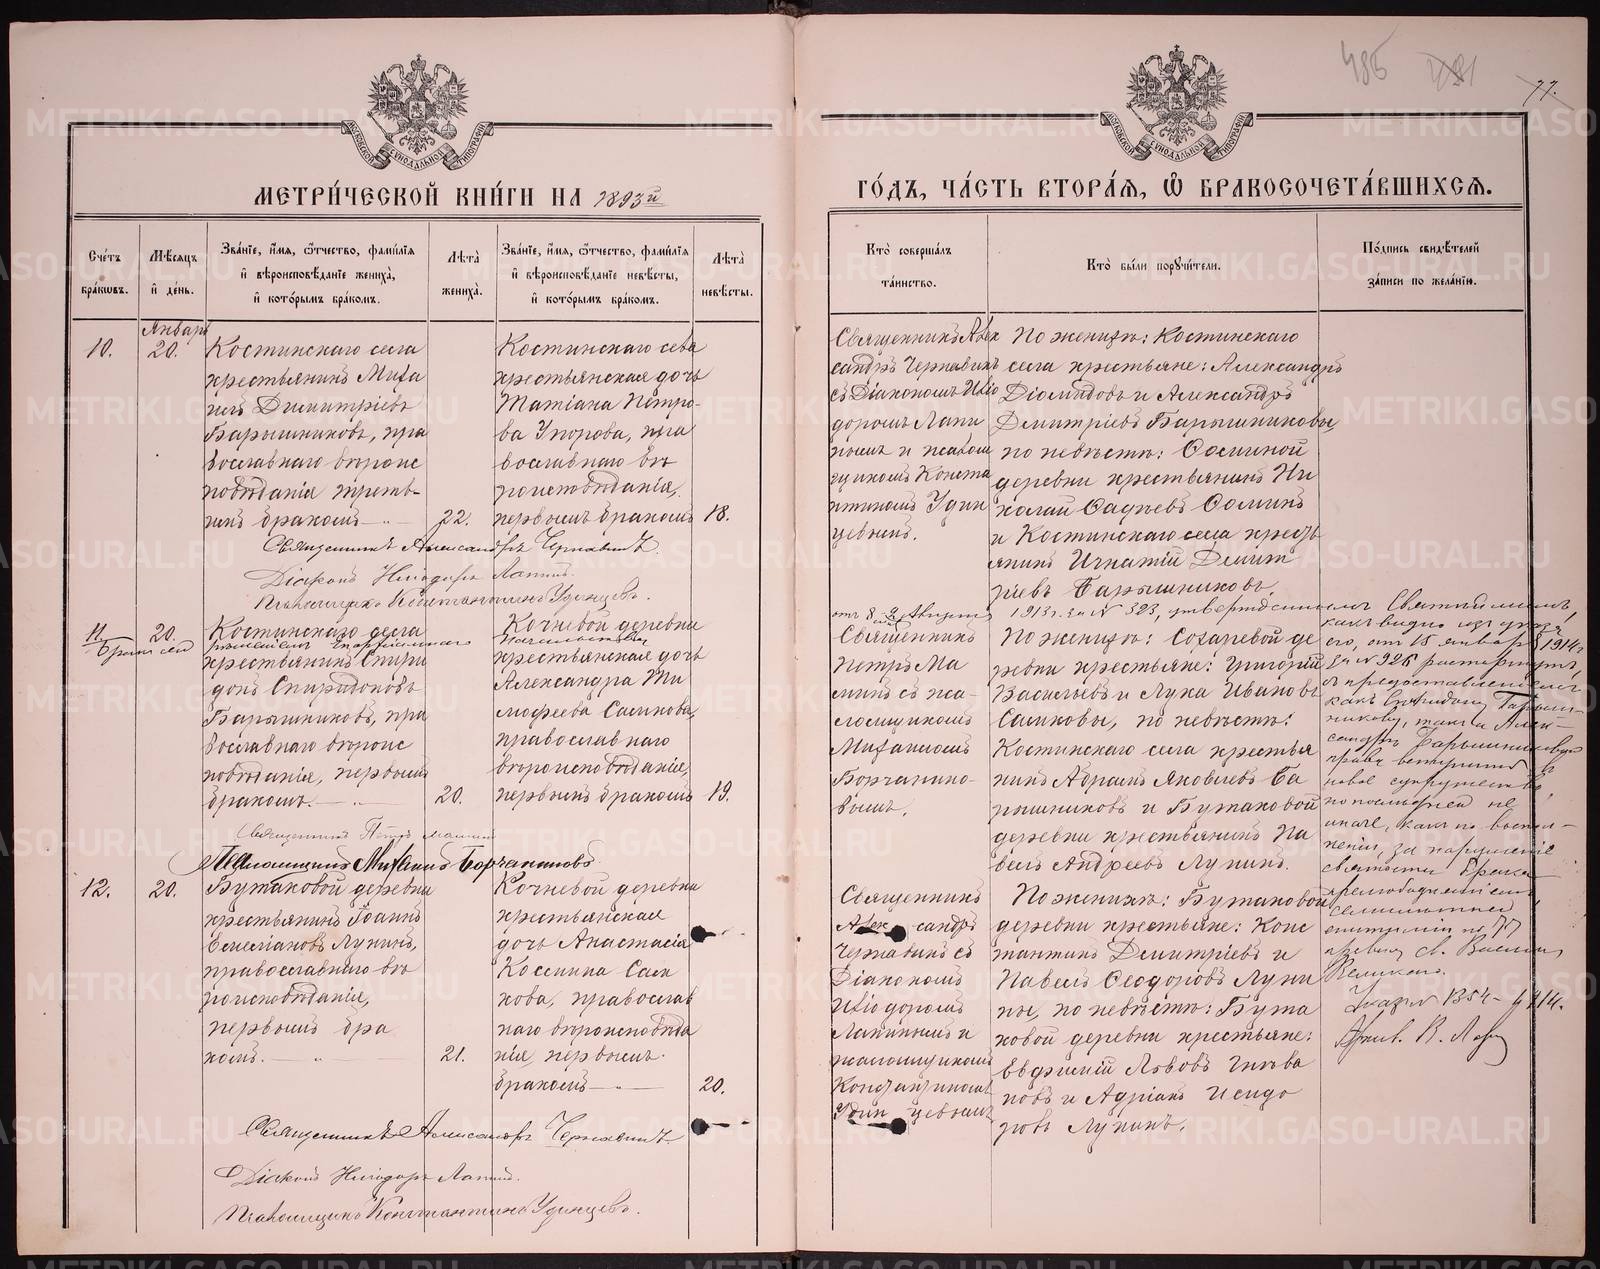 МЕТРИ́ЧЕСКОЙ КНИ́ГИ НА 1893й
ГО́ДЪ, ЧА́СТЬ ВТОРА́Я, Ѡ҆ БРАКОСОЧЕТА́ВШИХСЯ.
77.
МОСКОВСКОЙ СѴНОДАЛЬНОЙ ТИПОГРАФІИ
МОСКОВСКОЙ СѴНОДАЛЬНОЙ ТИПОГРАФІИ
Сче́тъ бра́кѡвъ.
Мѣ́сяцъ и҆ де́нь.
Зва́нїе, и҆́мя, ѻ҆́тчество, фамі́лїя и҆ вѣроисповѣ́данїе жениха̀, и҆ кото́рымъ бра́комъ.
Лѣ́та жениха̀.
Зва́нїе, и҆́мя, ѻ҆́тчество, фамі́лїя и҆ вѣроисповѣ́данїе невѣ́сты, и҆ кото́рымъ бра́комъ.
Лѣ́та невѣ́сты.
Кто̀ соверша́лъ та́инство.
Кто̀ бы́ли порꙋчи́тели.
По́дпись свидѣ́телей за́писи по жела́нїю.
10.
Январь
20.
Костинскаго села
крестьянинъ Миха
илъ Димитріевъ
Барышниковъ, пра
вославнаго вѣроис
повѣданія третьимъ
бракомъ
22.
Костинскаго села
крестьянская дочь
Татіана Петро-
ва Упорова, пра
вославнаго вѣ
роисповѣданія,
первымъ бракомъ
18.
Священникъ Алек
сандръ Чернавинъ
съ Діакономъ Иліо
доромъ Лапи
нымъ и псалом
щикомъ Конста
нтиномъ Удин
цевымъ.
По женихѣ: Костинскаго
села крестьяне: Александръ
Діомидовъ и Александръ
Дмитріевъ Барышниковы
по невѣстѣ:
деревни крестьянинъ Ни
колай
и Костинскаго села кресть
янинъ Игнатій Димит
ріевъ Барышниковъ.
Священникъ Александръ Чернавинъ.
Діаконъ Иліодоръ Лапинъ.
Псаломщикъ Константинъ Удинцевъ.
11.
20.
Костинскаго села
крестьянинъ Спири
донъ Спиридоновъ
Барышниковъ, пра
вославнаго вѣроис
повѣданія, первымъ
бракомъ.
20.
Кочневой деревни
крестьянская дочь
Александра Ти
мофеева Саннкова,
православнаго
вѣроисповѣданія,
первымъ бракомъ
19.
Священникъ
Петръ Ма
минъ съ пса-
ломщикомъ
Михаиломъ
Борчанино-
вымъ.
По женихѣ: Сохаревой де
ревни крестьяне: Григорій
Васильевъ и Лука Ивановъ
по невѣстѣ:
Костинскаго села крестья
нинъ Адріанъ Яковлевъ Ба
рышниковъ и Бутаковой
деревни крестьянинъ Па
велъ Андреевъ Лупинъ.
1913 г. за № 323, утвержденнымъ Святѣйшимъ,
какъ видно изъ указа
его, отъ 15 января 1914 г.
за № 926 расторгнутъ,
съ предоставленіемъ
какъ Спиридону Барыш-
никову, такъ и Алек-
сандрѣ Барышниковой
права вступить въ
новое супружество,
но послѣдней не
иначе, какъ по выпол-
неніи, за нарушеніе
святости брака
семилѣтней
епитиміи по 77
правилу св. Василія
Великаго.
Указъ № 1354 - 1914.
Священникъ Петръ Маминъ
Псаломщикъ Михаилъ Борчаниновъ
12.
20.
Бутаковой деревни
крестьянинъ Іоаннъ
Емеліановъ Лупинъ,
православнаго вѣ
роисповѣданія,
первымъ бра
комъ.
21.
Кочневой деревни
крестьянская
дочь Анастасія
Космина Сан
кова, православ
наго вѣроисповѣда
нія, первымъ
бракомъ
20.
Священникъ
Александръ
Чернавинъ съ
Діакономъ
Иліодоромъ
Лапинымъ и
псаломщикомъ
Константиномъ
Удинцевымъ
По женихѣ: Бутаковой
деревни крестьяне: Конс
тантинъ Димитріевъ и
Павелъ Ѳеодоровъ Лупи
ны, по невѣстѣ: Бута
ковой деревни крестьяне:
Евфимій Львовъ Гнева
новъ и Адріанъ Исидо
ровъ Лупинъ.
Священникъ Александръ Чернавинъ
Діаконъ Иліодоръ Лапинъ.
Псаломщикъ Константинъ Удинцевъ.
METRIKI.GASO-URAL.RU